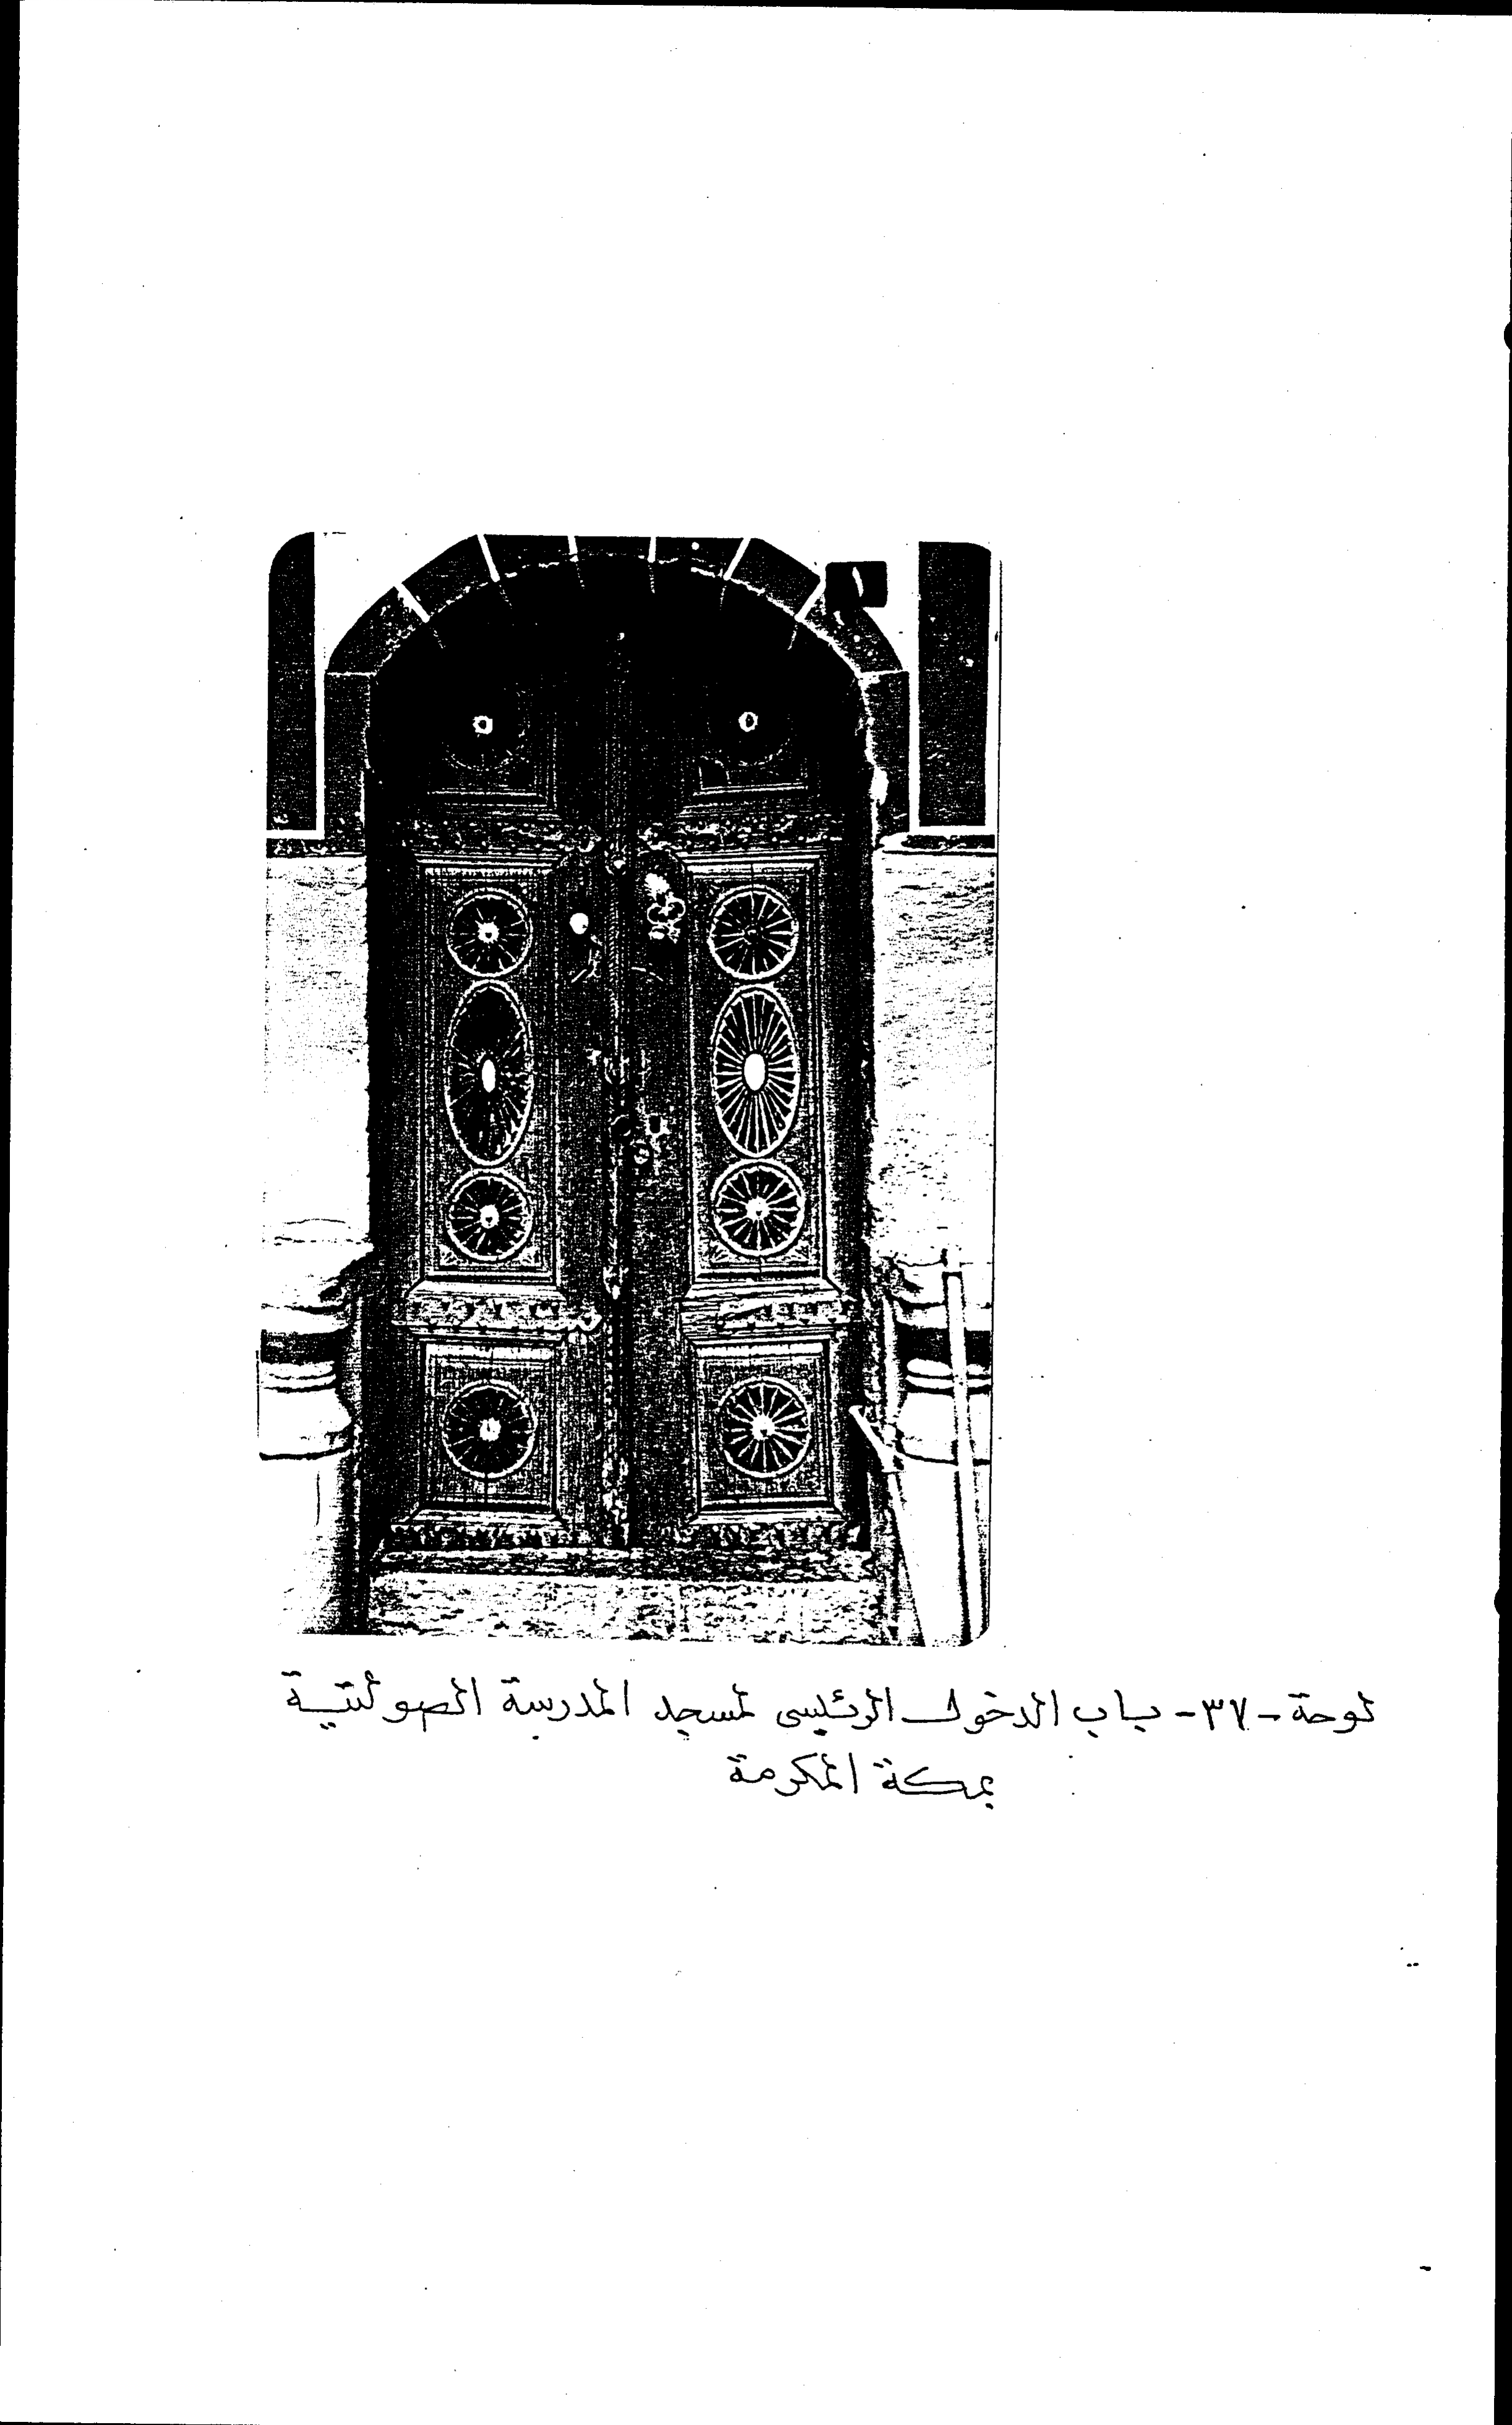 لوحة -٣٧- باب الدخول الرئيسى لمسجد المدرسة الصولتية
بمكة المكرمة